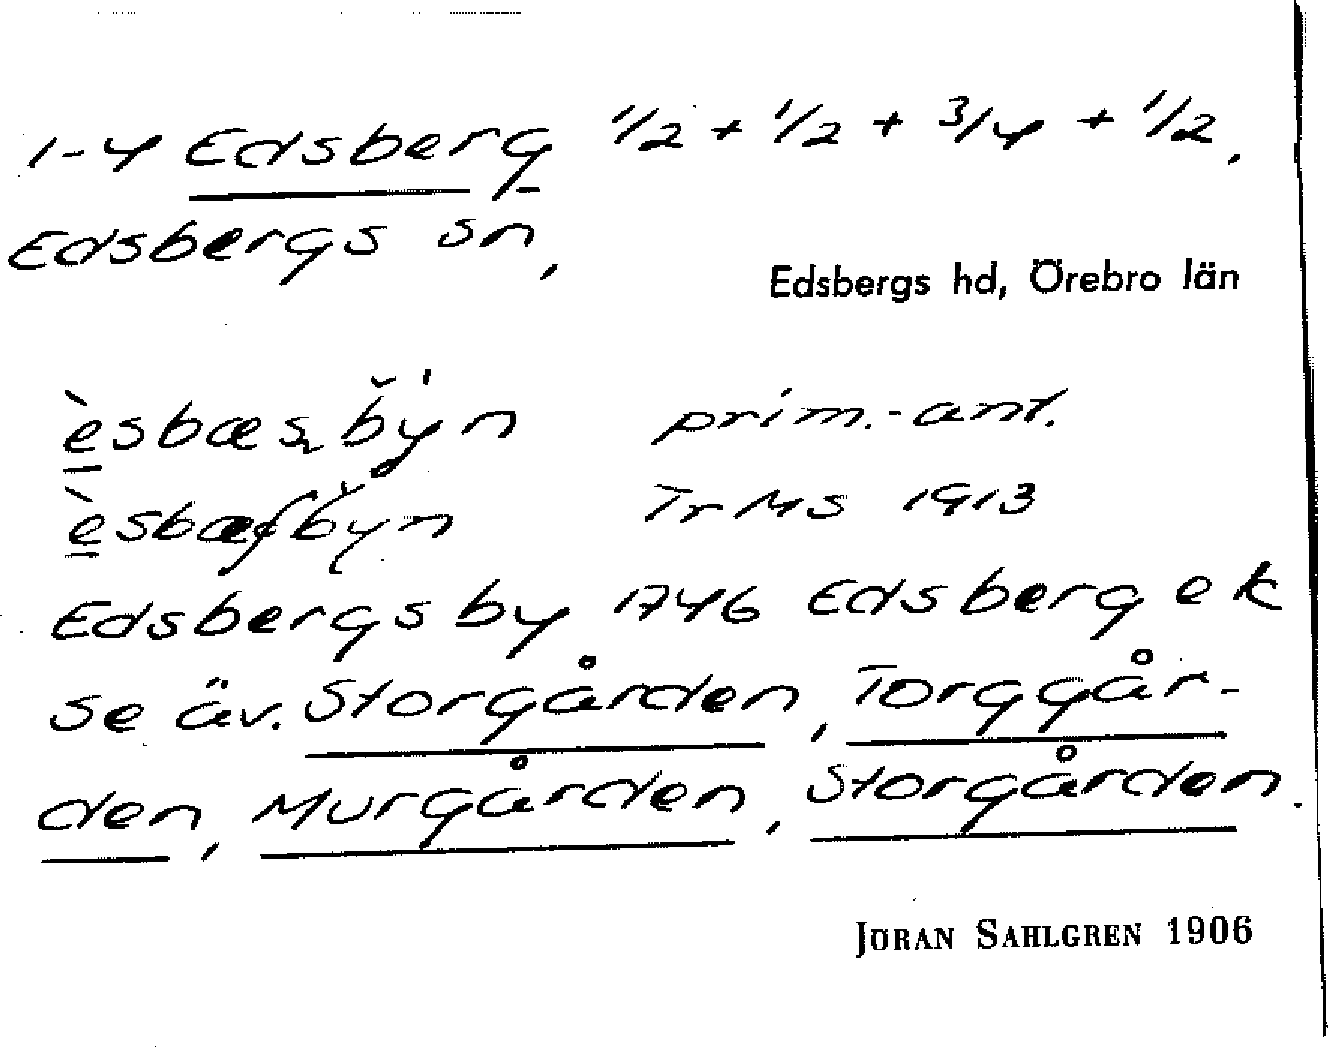 1-4 Edsberg 1/2 + 1/2 + 3/4 + 1/2,
Edsbergs sn,
Edsbergs hd, Örebro län
prim.-ant.
TrMS 1913
Edsbergs by 1746 Edsberg ek
se äv. Storgården, Torggår-
den, Murgården, Storgården.
JÖRAN SAHLGREN 1906